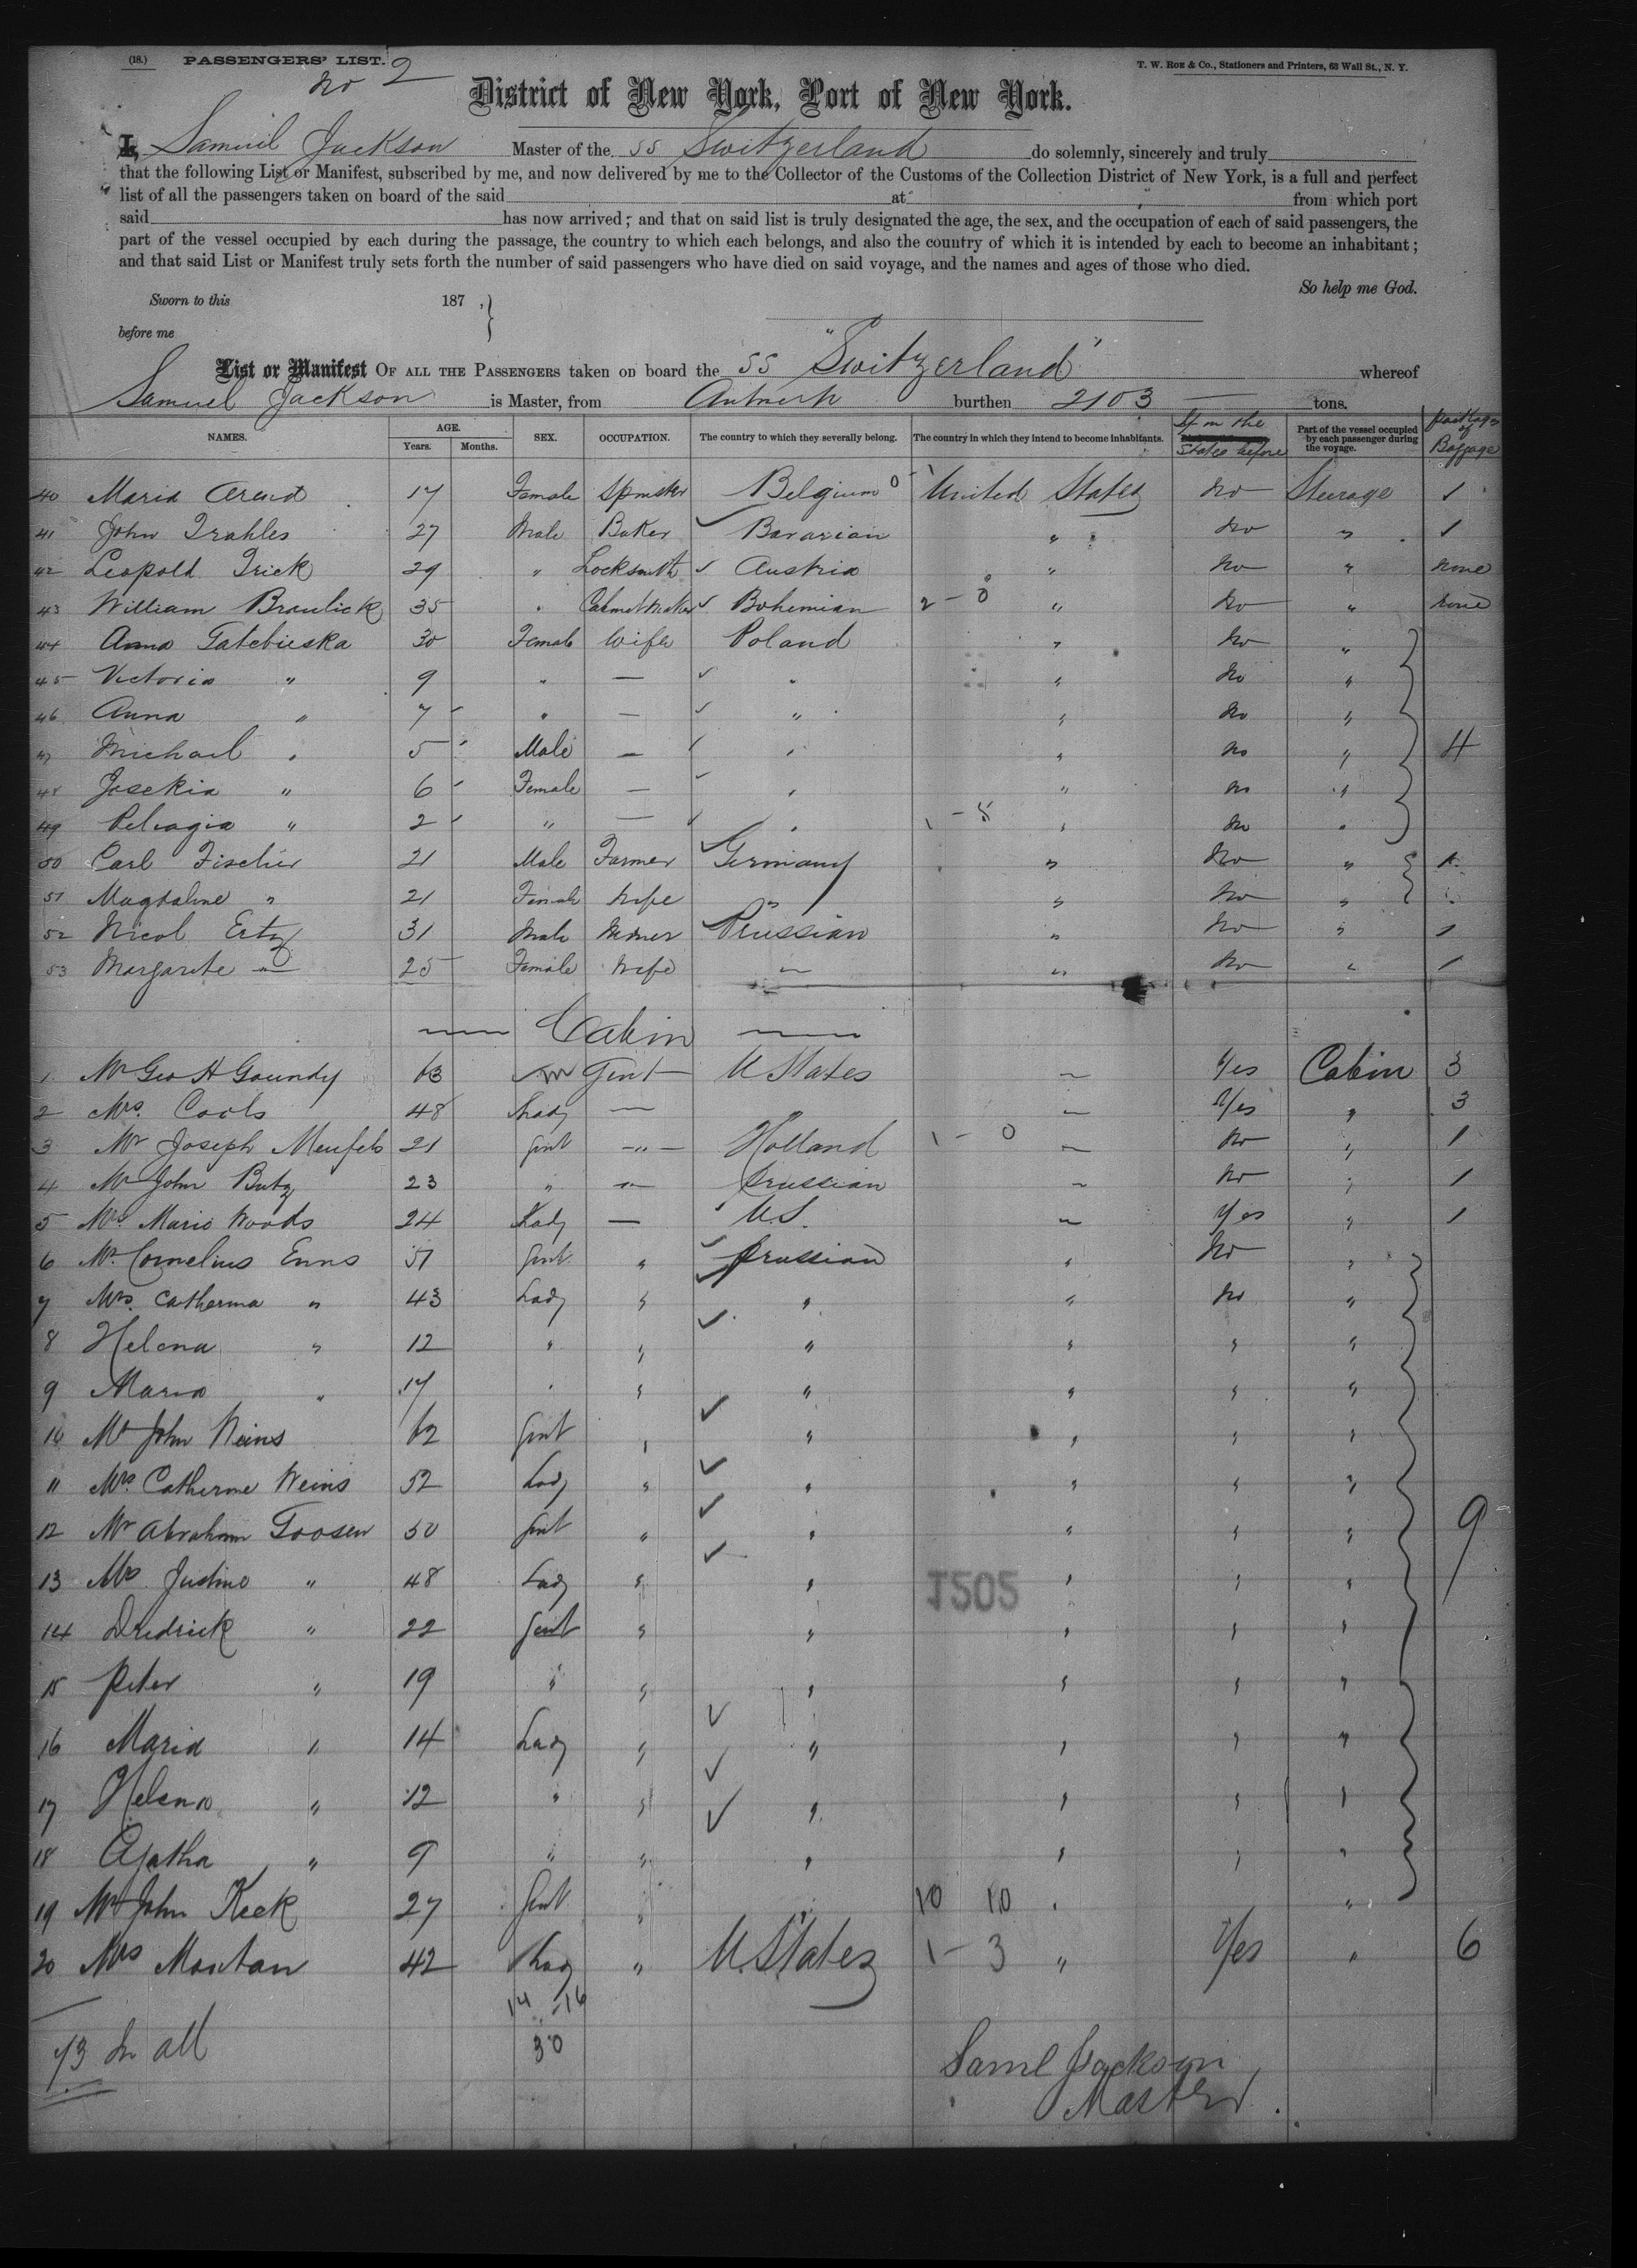 (18.) PASSENGERS' LIST. T. W. ROE & Co., Stationers and Printers, 63 Wall St., N. Y.
No 2
District of New York, Port of New York.
I, Samuel Jackson Master of the SS Switzerland do solemnly, sincerely and truly
that the following List or Manifest, subscribed by me, and now delivered by me to the Collector of the Customs of the Collection District of New York, is a full and perfect
list of all the passengers taken on board of the said at from which port
said has now arrived; and that on said list is truly designated the age, the sex, and the occupation of each of said passengers, the
part of the vessel occupied by each during the passage, the country to which each belongs, and also the country of which it is intended by each to become an inhabitant;
and that said List or Manifest truly sets forth the number of said passengers who have died on said voyage, and the names and ages of those who died.
So help me God.
Sworn to this 187 , }
before me
List or Manifest OF ALL THE PASSENGERS taken on board the SS "Switzerland" whereof
Samuel Jackson is Master, from Antwerp burthen 2103 tons.
NAMES. AGE. Years. Months. SEX. OCCUPATION. The country to which they severally belong. The country in which they intend to become inhabitants. If in the States before Part of the vessel occupied by each passenger during the voyage. package of Baggage
40 Maria Arend 17 Female Spinster Belgium 0 United States No Steerage 1
41 John Trahles 27 Male Baker Bavarian " No " 1
42 Leopold Trick 29 " Locksmith Austria " No " none
43 William Braulick 35 " Cabinetmaker Bohemian 2 - 0 " No " none
44 Anna Tatebieska 30 Female Wife Poland " No "
45 Victoria " 9 " — " " No "
46 Anna " 7 " — " " No "
47 Michael " 5 Male — " " No " 4
48 Josekia " 6 Female — " " No "
49 Pelagia " 2 " — " 1 - 5 " No "
50 Carl Fischer 21 Male Farmer Germany " No " 1
51 Magdalene " 21 Female Wife " " No "
52 Nicol Ertz 31 Male Miner Prussian " No " 1
53 Margarete " 25 Female Wife " " No " 1
Cabin
1 Mr Geo H Goundy 63 M Gent U States " Yes Cabin 3
2 Mrs. Cools 48 Lady — " Yes " 3
3 Mr Joseph Meufels 21 Gent —"— Holland 1 - 0 " No " 1
4 Mr John Butz 23 " " Prussian " No " 1
5 Mrs Marie Woods 24 Lady — U.S. " Yes " 1
6 Mr Cornelius Enns 51 Gent " Prussian " No "
7 Mrs. Catherina " 43 Lady " " " No "
8 Helena " 12 " " " " " "
9 Maria " 17 " " " " " "
10 Mr John Weins 62 Gent " " " " "
11 Mrs Catherine Weins 52 Lady " " " " "
12 Mr Abraham Toosen 50 Gent " " " " " 9
13 Mrs Justine " 48 Lady " " " " "
1505
14 Diedrick " 22 Gent " " " " "
15 Peter " 19 " " " " " "
16 Maria " 14 Lady " " " " "
17 Helena " 12 " " " " " "
18 Agatha " 9 " " " " " "
19 Mr John Keck 27 Gent " " 10 10 " "
20 Mrs Montan 42 Lady " U.States 1 - 3 " Yes " 6
14 - 16
73 In all 30
Saml Jackson
Master